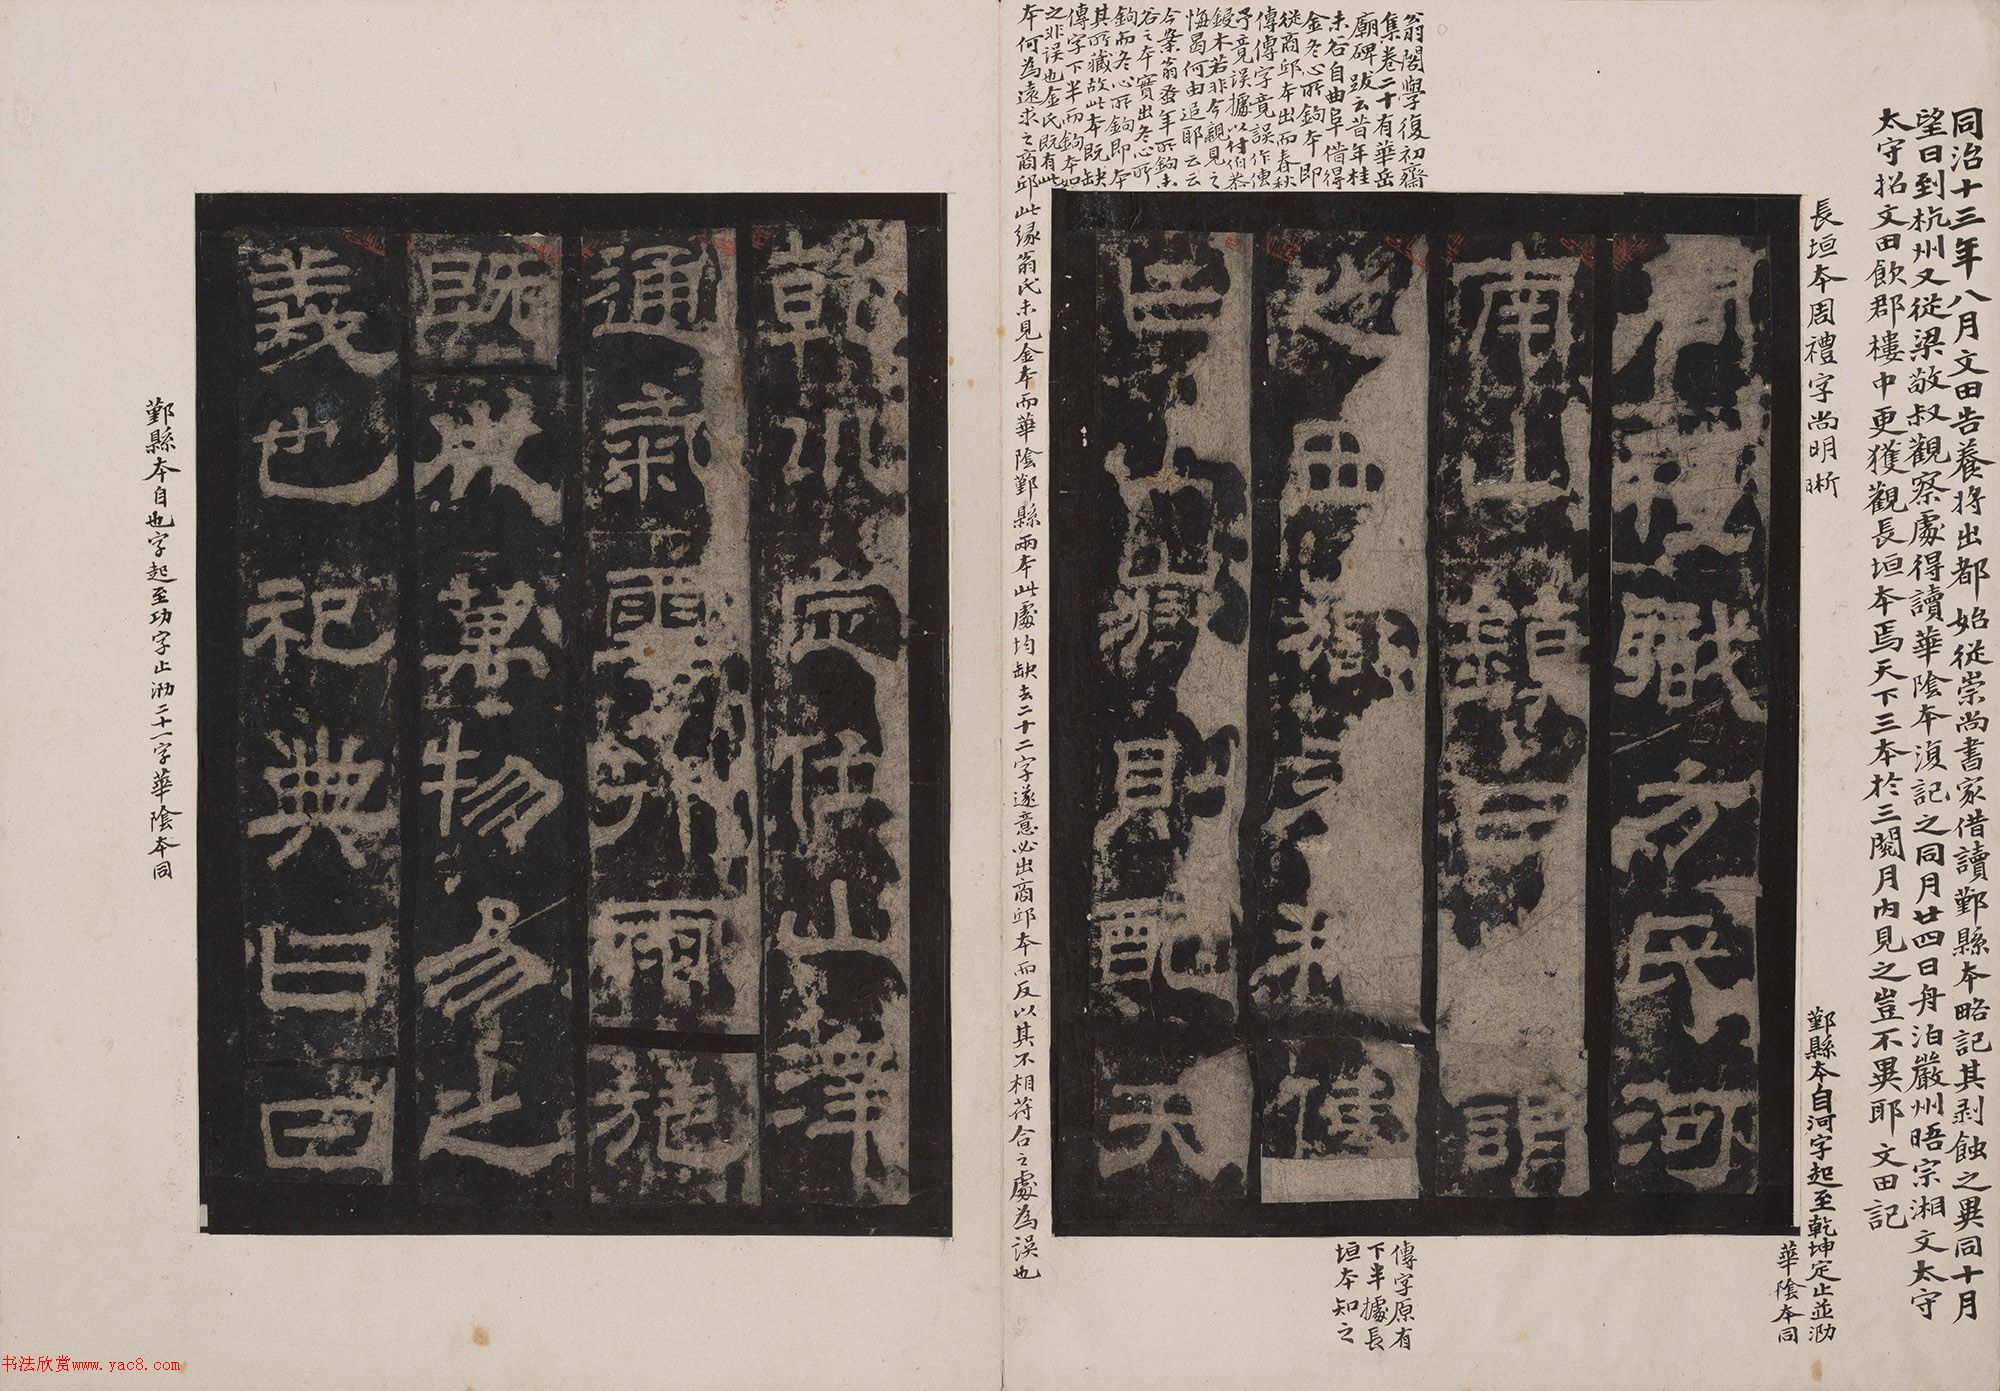 同治十三年八月文田告養將出都始從崇尚書家借讀鄞縣本略記其剥蝕之異同十月
望日到杭州又從梁敬叔觀察處得讀華陰本復記之同月廿四日舟泊嚴州晤宗湘文太守
太守招文田飲郡樓中更獲觀長垣本焉天下三本於三閱月内見之豈不異耶 文田記
長垣本周禮字尚明晰
鄞縣本自河字起至乾坤定止並泐
華陰本同
周禮職方氏河
南山鎮曰 謂
之西嶽春秋傳
曰山嶽則配天
傳字原有
下半據長
垣本知之
翁閣學復初齋
集卷二十有華岳
廟碑跋云昔年桂
未谷自曲阜借得
金冬心所鉤本即
從商邱本出而春秋
傳傳字竟誤作傳
予竟誤據以付伯恭
鋟木若非今親見之
悔曷何由追耶云云
今案翁蚤年所鉤未
谷之本實出冬心所
鉤而冬心所鉤即本
其所藏故此本既缺
傳字下半而鉤本如
之非誤也金氏既有此
本何為遠求之商邱此緣翁氏未見金本而華陰鄞縣兩本此處均缺去二十二字遂意必出商邱本而反以其不相符合之處為誤也
乾㘩定位山澤
通氣雲行雨施
既成萬物易之
義也祀典曰日
鄞縣本自也字起至功字止泐二十一字華陰本同
书法欣赏www.yac8.com